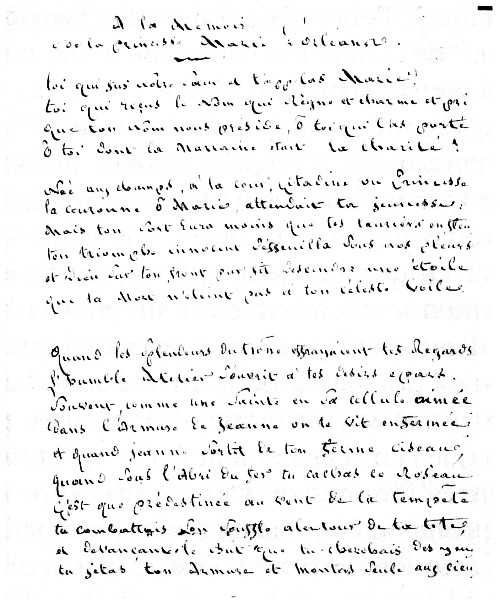 A la Mémoire
de la princesse Marie d'Orléans.
toi qui fus notre sœur et t'applas Marie!
toi qui reçus le Nom qui règne et charme et pri
que ton Nom nous préside, ô toi qui l'as porté
ô toi dont la Marraine était la charité!
Née aux champs, à la cour, citadine ou Princesse
la couronne ô Marie, attendait ta jeunesse,
Mais ton sort dura moins que tes lauriers en fleu
ton triomphe innocent s'effeuilla sous nos pleurs
et Dieu sur ton front pur fit descendre une étoile
que la Mort n'éteint pas à ton céleste voile.
Quand les splendeurs du trône essayaient tes Regards
l'humble Atelier s'ouvrit à tes désirs epars.
Souvent, comme une Sainte en sa cellule aimée
dans l'Armure de Jeanne on te vit enfermée
et quand jeanne sortit de ton ferme ciseau,
quand sous l'Abri du fer tu cachas le Roseau
c'est que prédestinée au vent de la tempête
tu combattais son souffle alentour de ta tête
et devançant le but que tu cherchais des yeux
tu jetas ton Armure et montas seule aux cieu